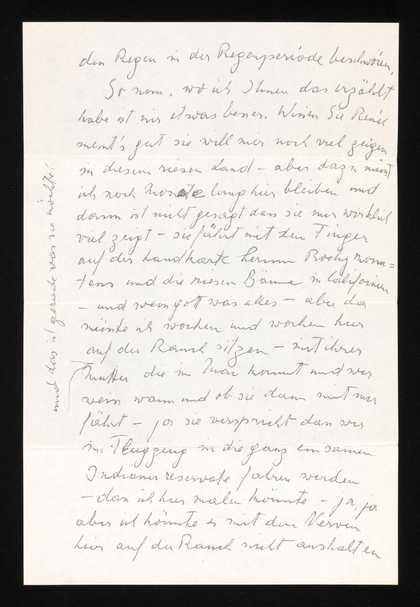 den Regen in der Regenperiode beschwören,
So nun, wo ich Ihnen das erzählt
habe ist mir etwas besser. Wissen Sie Renée
meint's gut sie will mir noch viel zeigen
in diesem riesen Land – aber dazu müsst
ich noch Monate lang hier bleiben und
dann ist nicht gesagt dass sie mir wirklich
viel zeigt – sie fährt mit dem Finger
auf der Landkarte herum Rocky moun=
tens und die riesen Bäume in Californien
– und weissgott was alles – aber da
müsste ich wochen und wochen hier
auf der Ranch sitzen – mit ihrer
Mutter die im Mai kommt und wer
weiss wann und ob sie dann mit mir
fährt – ja sie verspricht dass wir
im Flugzeug in die ganz einsamen
Indianerreservate fahren werden
– dass ich hier malen könnte – ja, ja
aber ich könnte es mit den Nerven
hier auf der Ranch nicht aushalten
und das ist gerade was sie möchte!